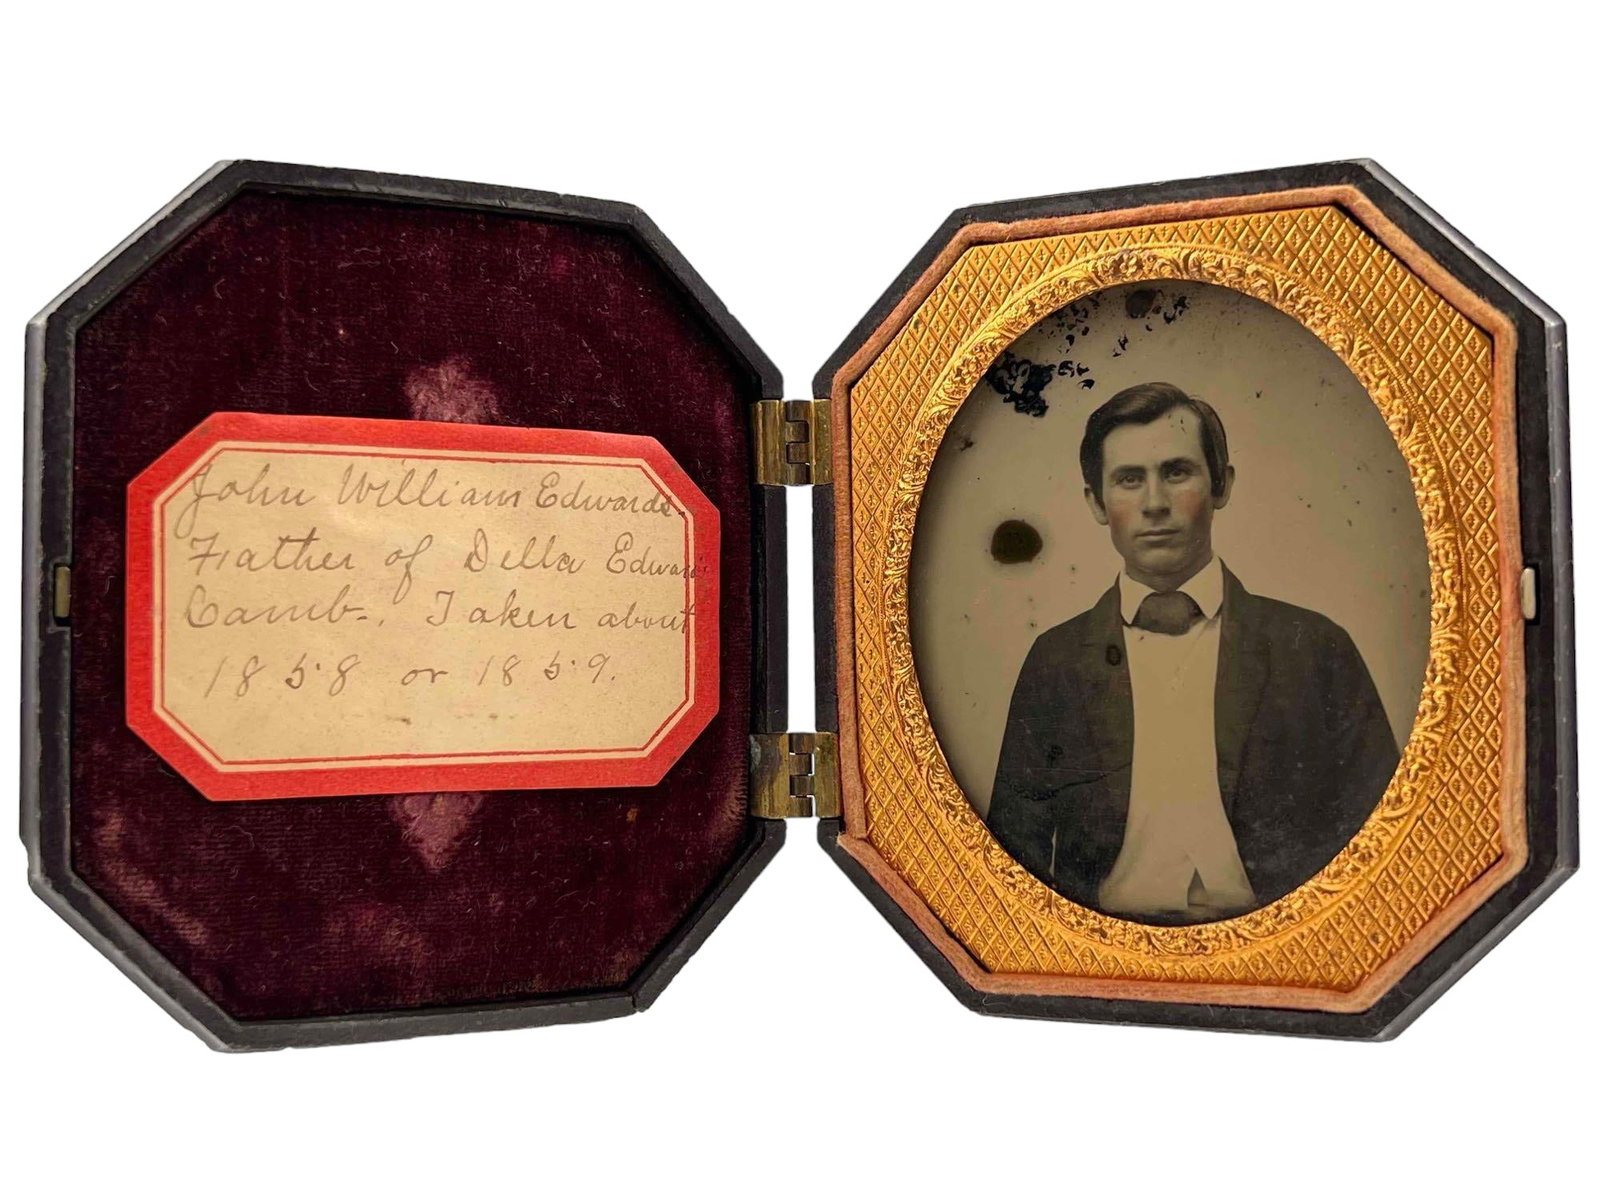 John William Edwards.
Father of Della Edwards
Camb-. Taken about
1858 or 1859.